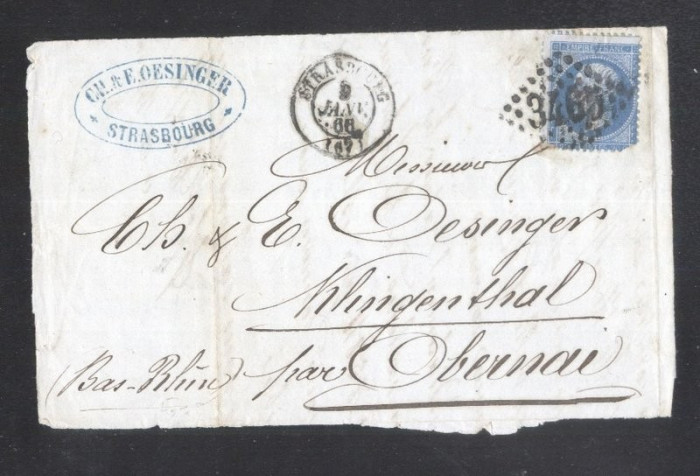 CH. & E. OESINGER
STRASBOURG
STRASBOURG
JANV.
66
(67)
EMPIRE FRANC
Messieurs
Ch. & E. Oesinger
Klingenthal
(Bas-Rhin) par Obernai